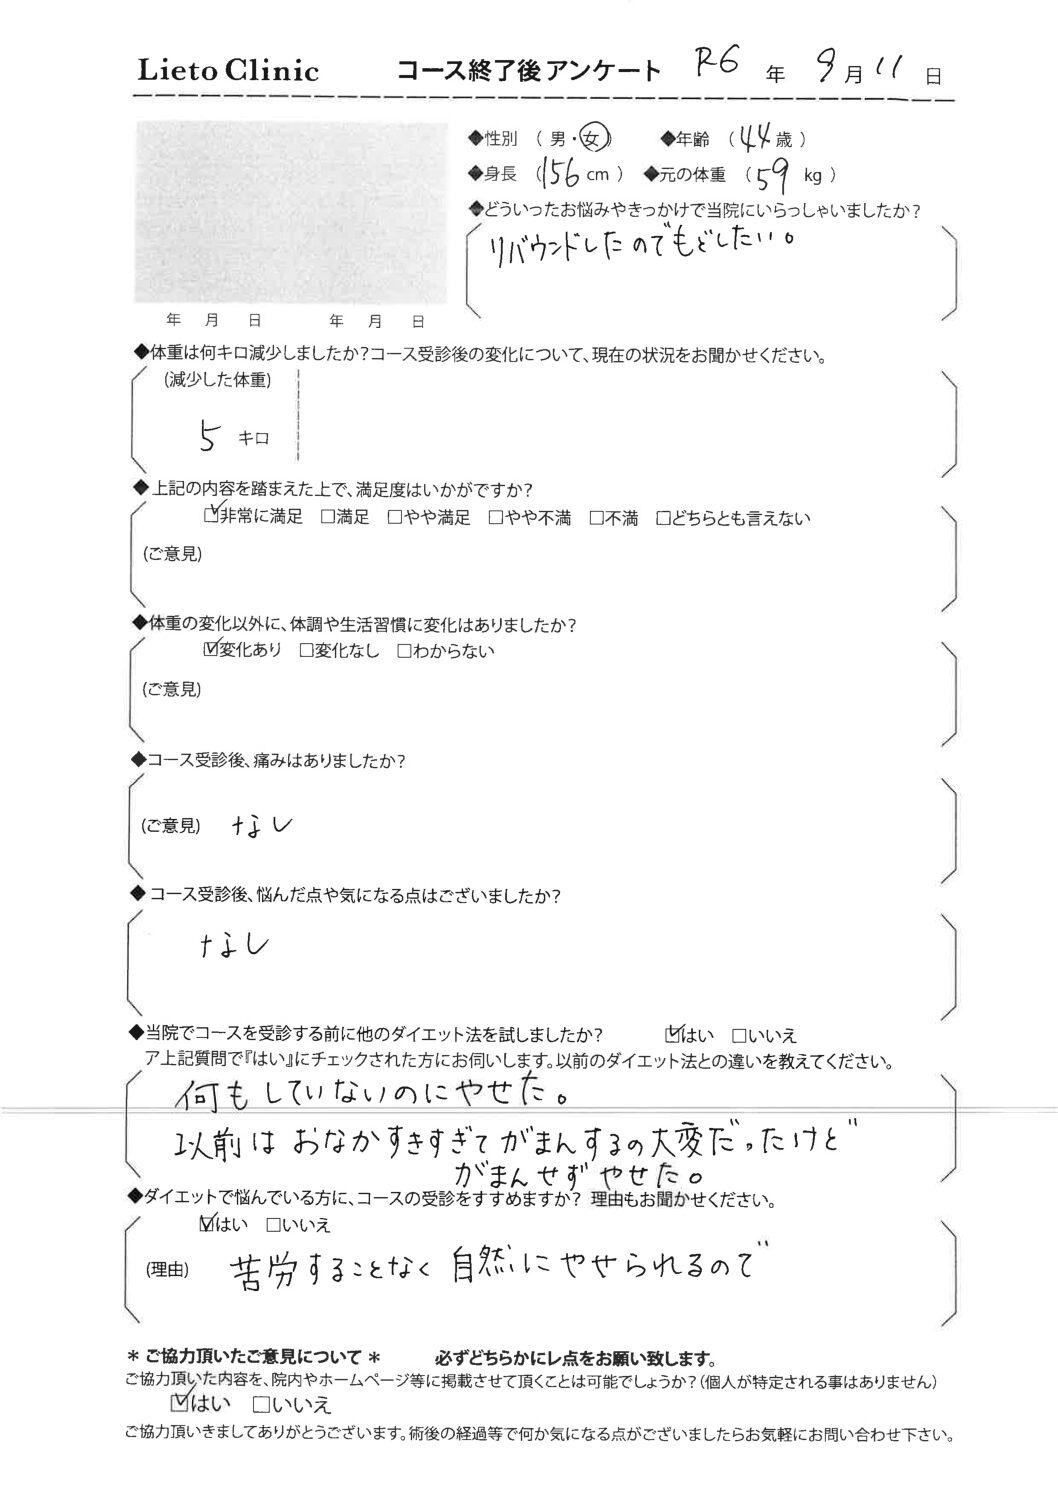 Lieto Clinic コース終了後アンケート R6 年 9月 11 日
◆性別 (男・女) ◆年齢 (44歳)
◆身長 (156 cm) ◆元の体重 (59 kg)
◆どういったお悩みやきっかけで当院にいらっしゃいましたか?
リバウンドしたのでもどしたい。
年 月 日 年 月 日
◆体重は何キロ減少しましたか?コース受診後の変化について、現在の状況をお聞かせください。
(減少した体重)
5 キロ
◆上記の内容を踏まえた上で、満足度はいかがですか?
☑非常に満足 □満足 □やや満足 □やや不満 □不満 □どちらとも言えない
(ご意見)
◆体重の変化以外に、体調や生活習慣に変化はありましたか?
☑変化あり □変化なし □わからない
(ご意見)
◆コース受診後、痛みはありましたか?
(ご意見) なし
◆コース受診後、悩んだ点や気になる点はございましたか?
なし
◆当院でコースを受診する前に他のダイエット法を試しましたか? ☑はい □いいえ
ア上記質問で『はい』にチェックされた方にお伺いします。以前のダイエット法との違いを教えてください。
何もしていないのにやせた。
以前は おなかすきすぎて がまんするの大変だったけど
がまんせず やせた。
◆ダイエットで悩んでいる方に、コースの受診をすすめますか? 理由もお聞かせください。
☑はい □いいえ
(理由) 苦労することなく 自然にやせられるので
＊ご協力頂いたご意見について＊ 必ずどちらかにレ点をお願い致します。
ご協力頂いた内容を、院内やホームページ等に掲載させて頂くことは可能でしょうか?(個人が特定される事はありません)
☑はい □いいえ
ご協力頂いきましてありがとうございます。術後の経過等で何か気になる点がございましたらお気軽にお問い合わせ下さい。